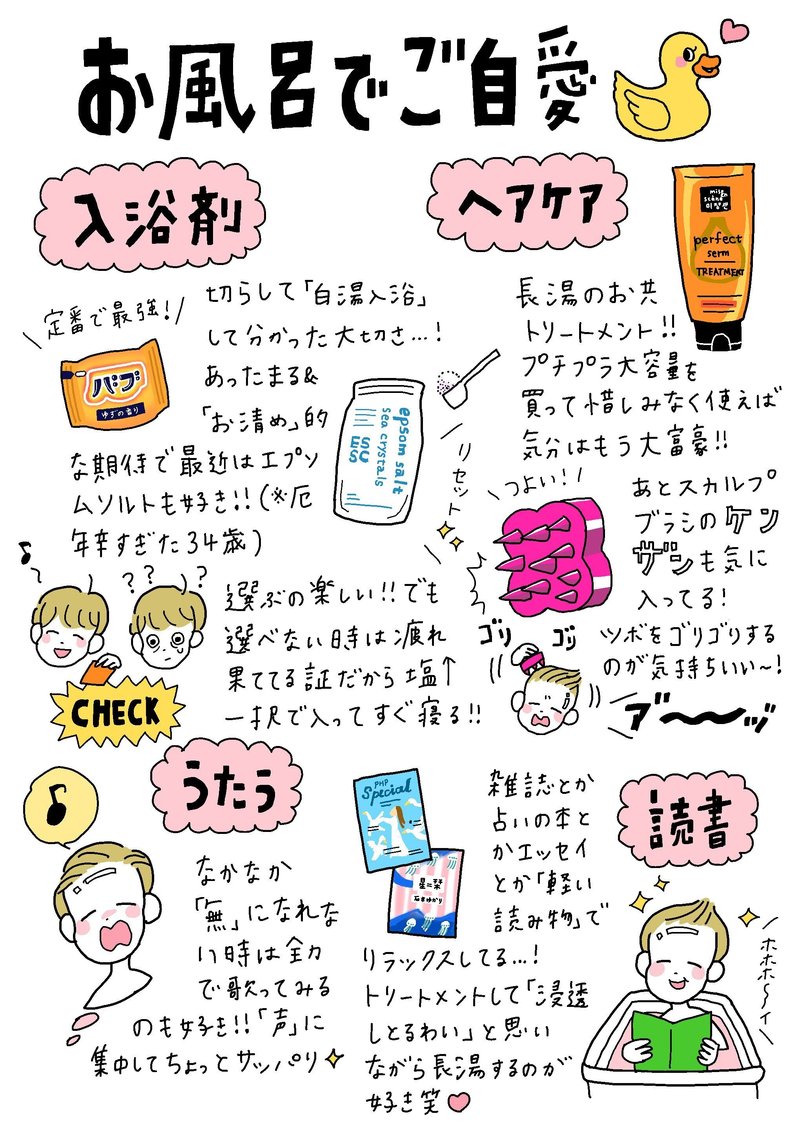 お風呂でご自愛
入浴剤
定番で最強!
バブ
ゆずの香り
切らして「白湯入浴」
して分かった大切さ…!
あったまる&
「お清め」的
な期待で最近はエプソ
ムソルトも好き!!(※厄
年辛すぎた34歳)
epsom salt
sea crystals
ESSC
リセット
♪
? ? ?
CHECK
選ぶの楽しい!!でも
選べない時は疲れ
果ててる証だから塩↑
一択で入ってすぐ寝る!!
ヘアケア
mise en
scène
미쟝센
perfect
serm
TREATMENT
長湯のお共
トリートメント!!
プチプラ大容量を
買って惜しみなく使えば
気分はもう大富豪!!
つよい!
あとスカルプ
ブラシのケン
ザンも気に
入ってる!
ツボをゴリゴリする
のが気持ちいい〜!
ゴリ ゴリ
ア゛〜〜ッ
うたう
♪
なかなか
「無」になれな
い時は全力
で歌ってみる
のも好き!!「声」に
集中してちょっとサッパリ
読書
PHP
Special
星栞
石井ゆかり
雑誌とか
占いの本と
かエッセイ
とか「軽い
読み物」で
リラックスしてる…!
トリートメントして「浸透
しとるわい」と思い
ながら長湯するのが
好き笑
ホホホ〜イ